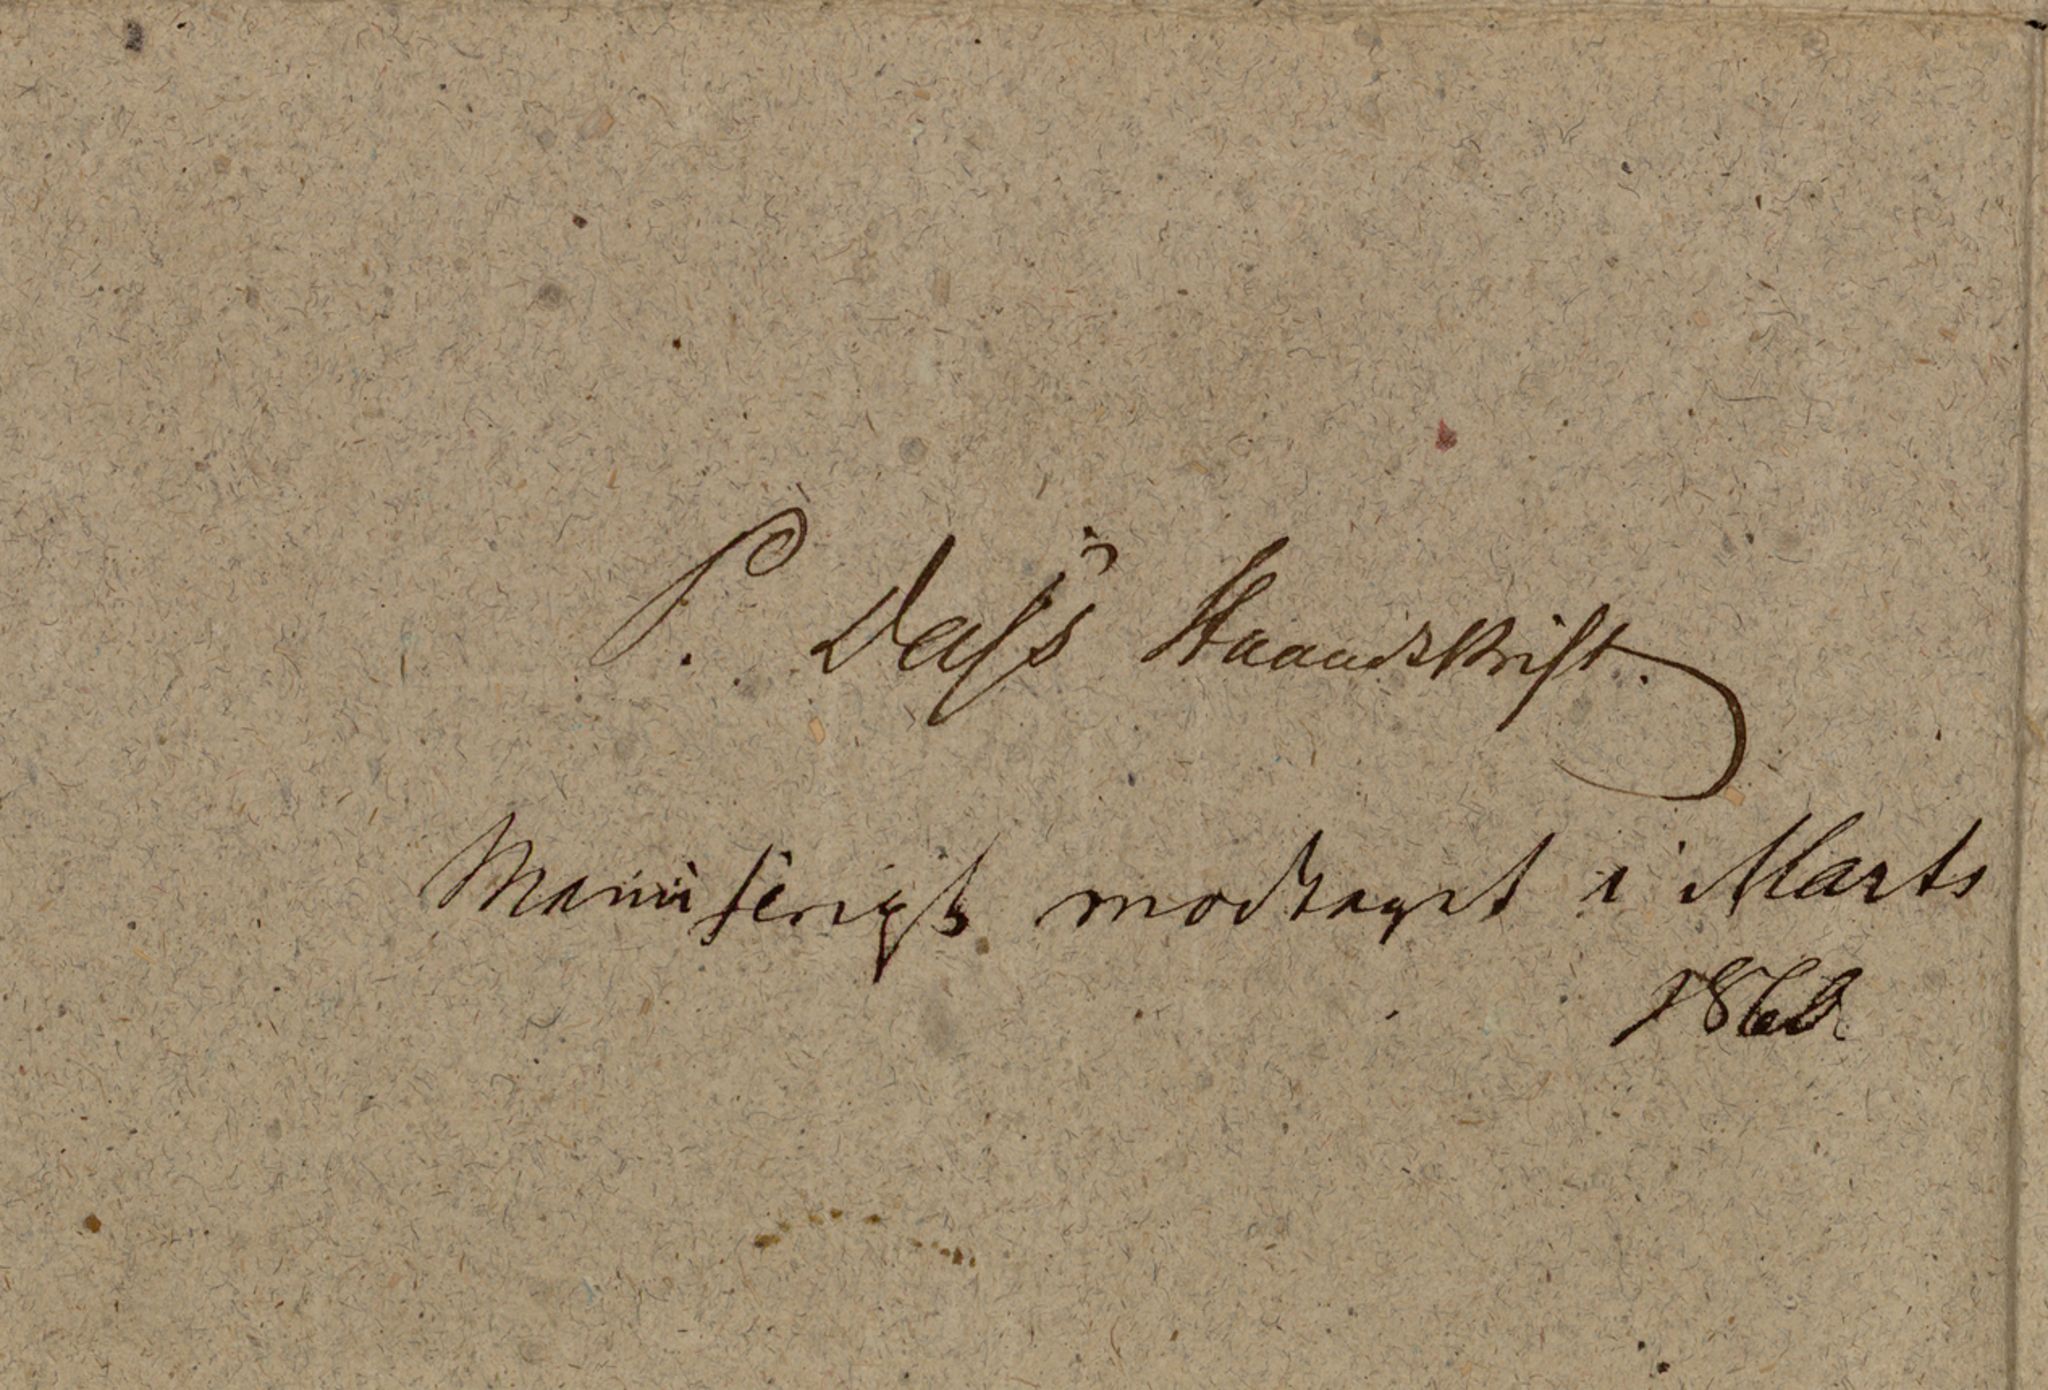 P. Dass' Haandskrift.
Manuscript modtaget i Marts
1860